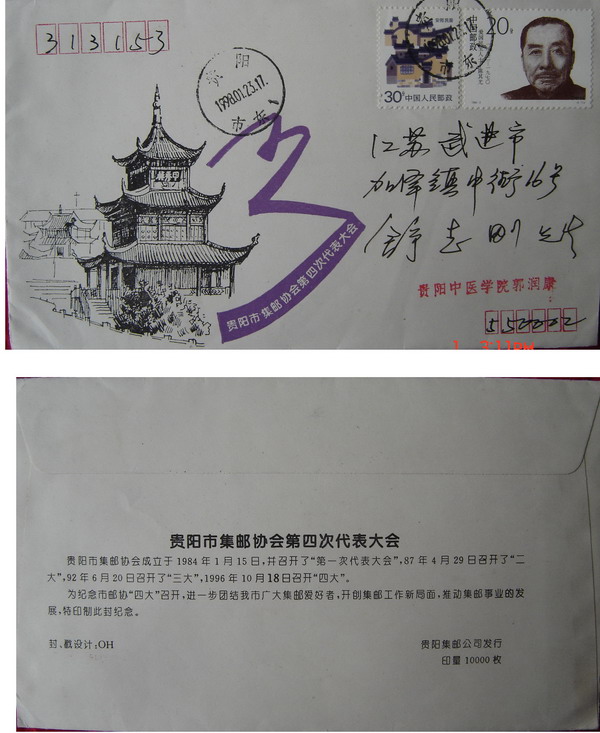 313153
贵阳
1998.01.23.17.
市东
30分中国人民邮政
20分
中国邮政
江苏武进市
加泽镇中街16号
志刚
贵阳市集邮协会第四次代表大会
贵阳中医学院郭润康
550002
贵阳市集邮协会第四次代表大会
贵阳市集邮协会成立于1984年1月15日,并召开了“第一次代表大会”,87年4月29日召开了“二
大”,92年6月20日召开了“三大”,1996年10月18日召开“四大”。
为纪念市邮协“四大”召开,进一步团结我市广大集邮爱好者,开创集邮工作新局面,推动集邮事业的发
展,特印制此封纪念。
封、戳设计:OH
贵阳集邮公司发行
印量10000枚